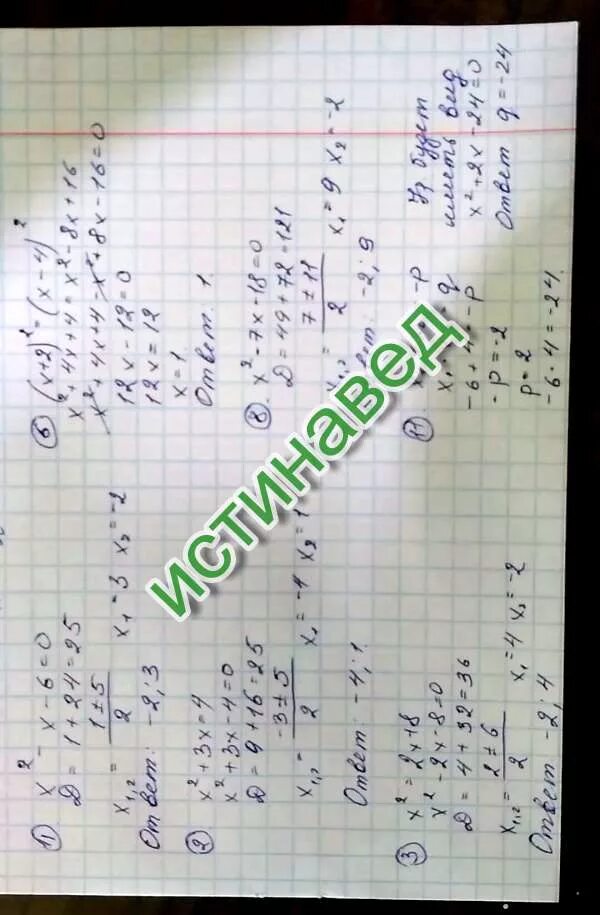 1) x² - x - 6 = 0
D = 1 + 24 = 25
x₁,₂ = (1 ± 5)/2 x₁ = 3 x₂ = -2
Ответ: -2; 3
2) x² + 3x = 4
x² + 3x - 4 = 0
D = 9 + 16 = 25
x₁,₂ = (-3 ± 5)/2 x₁ = -4 x₂ = 1
Ответ: -4; 1.
3) x² = 2x + 8
x² - 2x - 8 = 0
D = 4 + 32 = 36
x₁,₂ = (2 ± 6)/2 x₁ = 4 x₂ = -2
Ответ -2; 4
6) (x + 2)² = (x - 4)²
x² + 4x + 4 = x² - 8x + 16
x² + 4x + 4 - x² + 8x - 16 = 0
12x - 12 = 0
12x = 12
x = 1
Ответ: 1.
8) x² - 7x - 18 = 0
D = 49 + 72 = 121
x₁,₂ = (7 ± 11)/2 x₁ = 9 x₂ = -2
-2; 9
11)
-p
q
-6 + 4 = -p
-p = -2
p = 2
-6 · 4 = -24.
Ур будет
иметь вид
x² + 2x - 24 = 0
Ответ q = -24
ИСТИНАВЕД